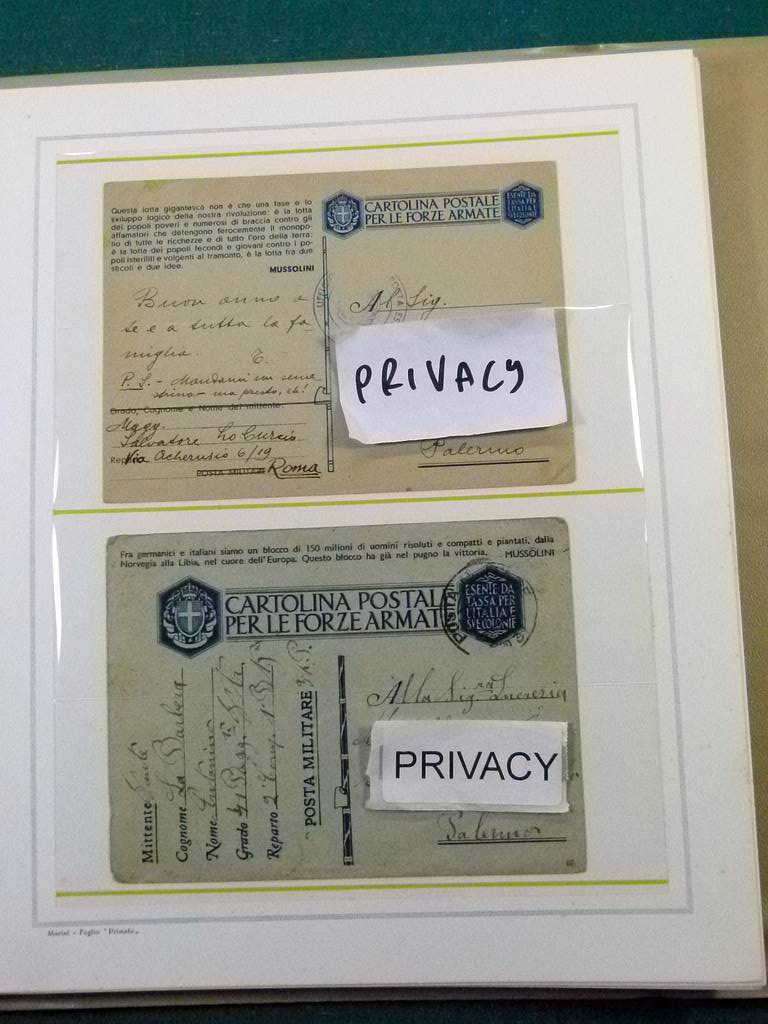 Questa lotta gigantesca non è che una fase e lo
sviluppo logico della nostra rivoluzione: è la lotta
dei popoli poveri e numerosi di braccia contro gli
affamatori che detengono ferocemente il monopo-
lio di tutte le ricchezze e di tutto l'oro della terra:
è la lotta dei popoli fecondi e giovani contro i po-
poli isteriliti e volgenti al tramonto, è la lotta fra due
secoli e due idee.
MUSSOLINI
CARTOLINA POSTALE
PER LE FORZE ARMATE
ESENTE DA
TASSA PER
L'ITALIA E
SVE COLONIE
Buon anno a
te e a tutta la fa
miglia. T.
P. S. - Mandami un
ma presto, eh!
Grado, Cognome e Nome del mittente:
Magg.
Salvatore Lo Curcio
Via Acherusio 6/19
POSTA MILITARE Roma
Al Sig.
PRIVACY
Palermo
Fra germanici e italiani siamo un blocco di 150 milioni di uomini risoluti e compatti e piantati, dalla
Norvegia alla Libia, nel cuore dell'Europa. Questo blocco ha già nel pugno la vittoria. MUSSOLINI
CARTOLINA POSTAL
PER LE FORZE ARMAT
ESENTE DA
TASSA PER
L'ITALIA E
SVE COLONIE
Mittente
Cognome La Barbera
Nome
Grado
Reparto 2ª Comp.
POSTA MILITARE
Alla Sig.na Lucrezia
PRIVACY
Palermo
Marini - Foglio "Primato"